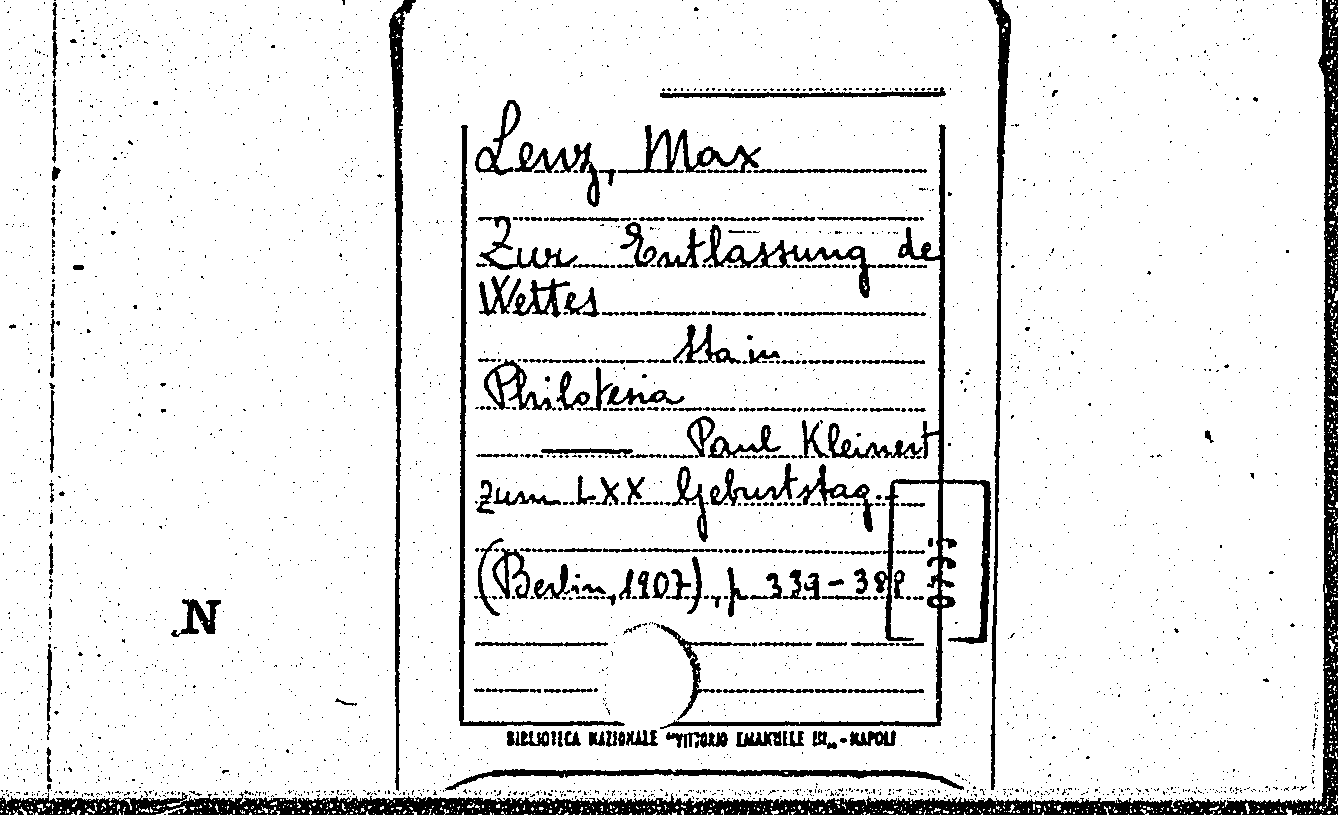 Lenz, Max
Zur Entlassung de
Wettes
Sta in
Philotesia
Paul Kleinert
zum LXX Geburtstag.
(Berlin, 1907), p. 339-388
N
BIBLIOTECA NAZIONALE "VITTORIO EMANUELE III" - NAPOLI